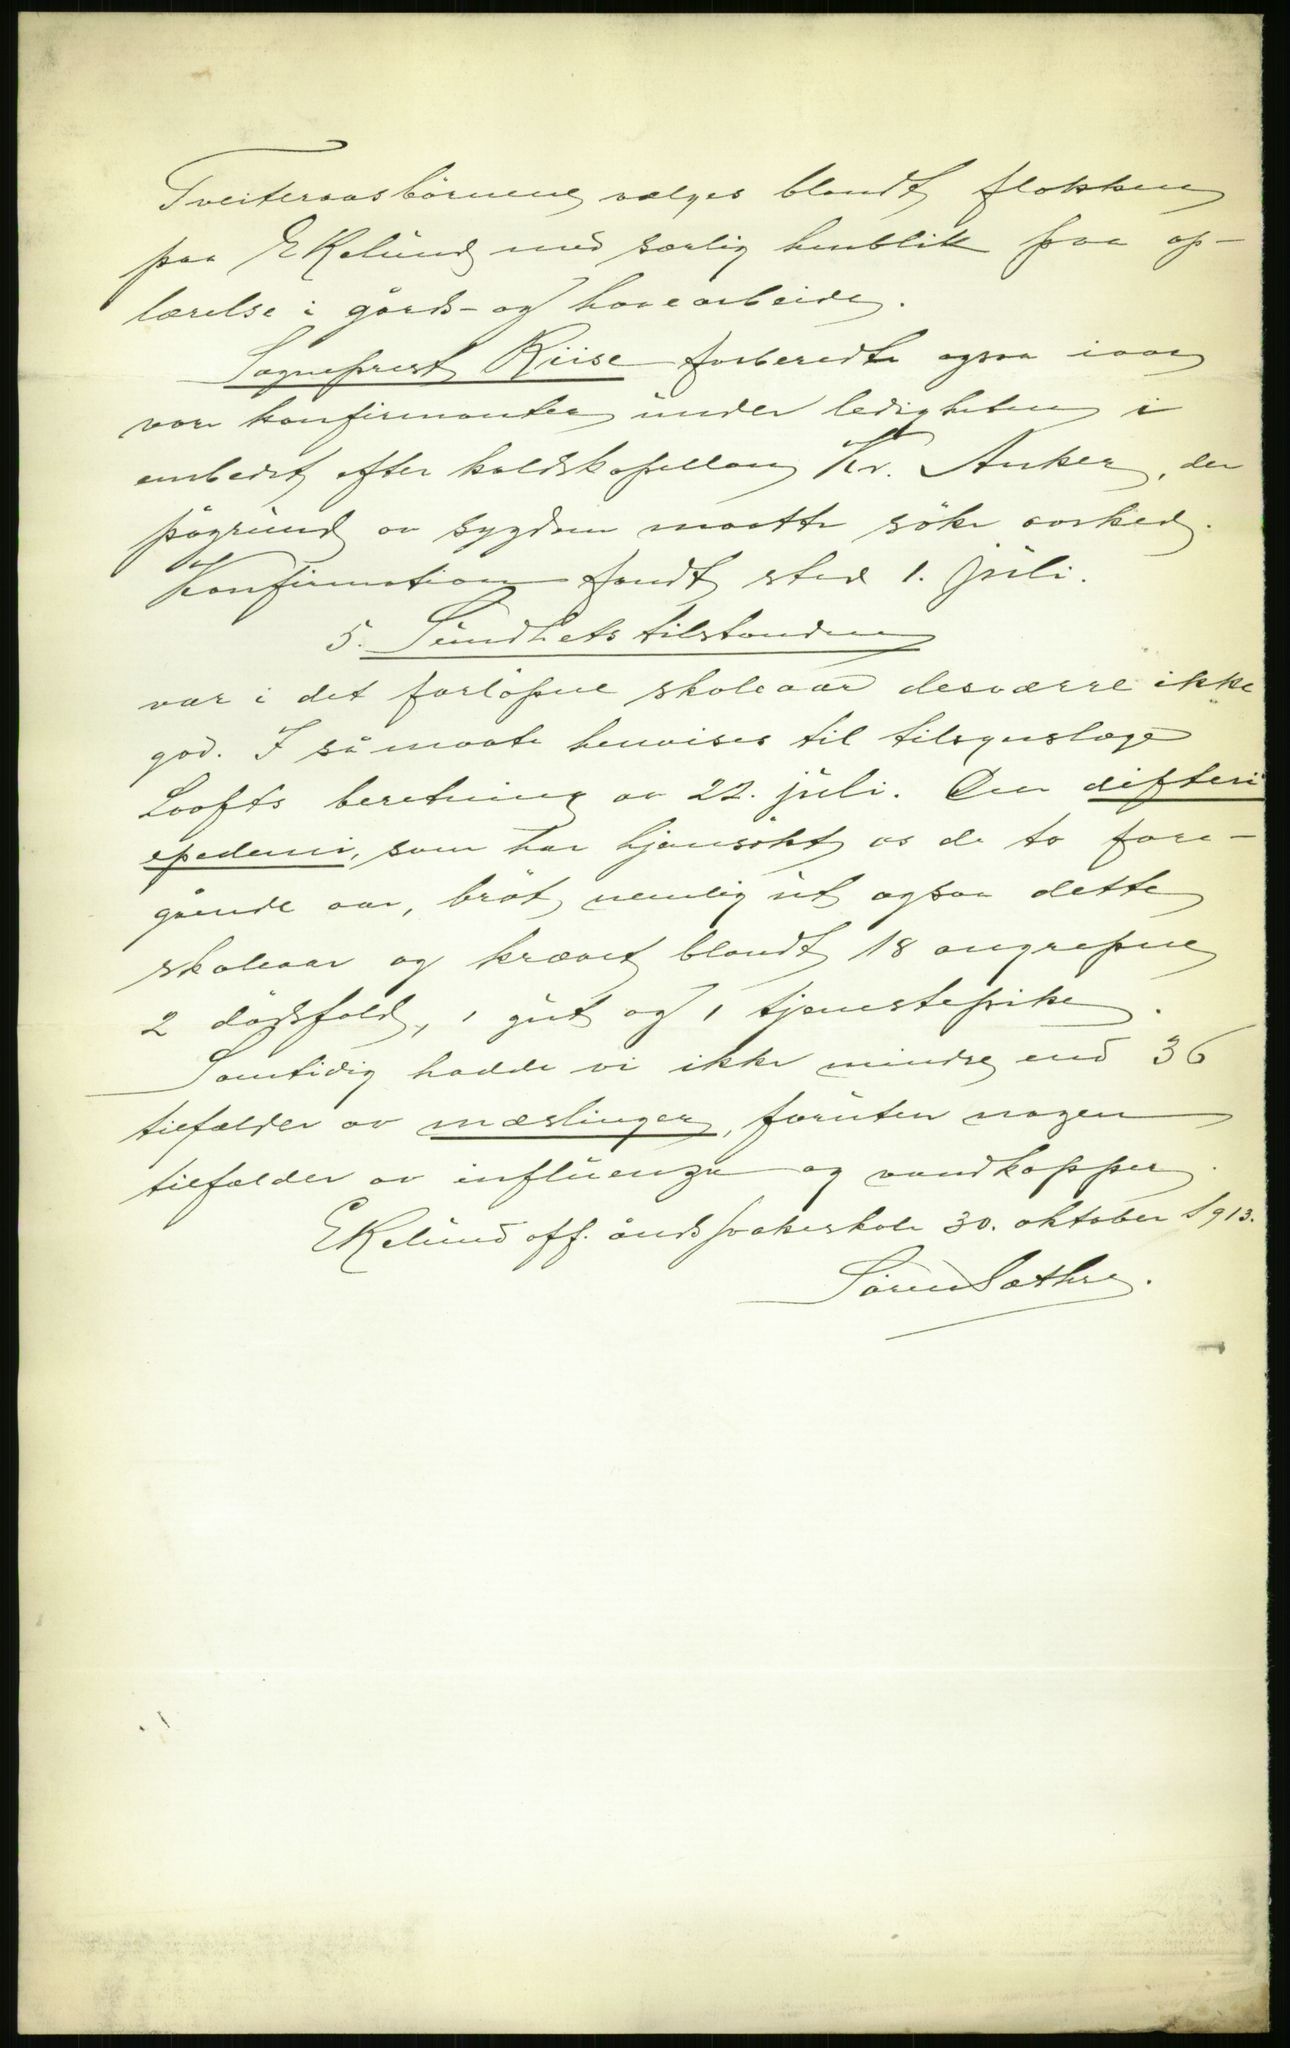 Tveiteraasbörnene vælges blandt flokken
paa Ekelund med særlig henblik paa op-
lærelse i gårds- og havearbeide.
Sogneprest Riise forberedte ogsaa iaar
vore konfirmanter under ledigheten i
embedet efter kaldskapellan Kr. Anker, der
pågrund av sygdom maatte söke avsked.
Konfirmation fandt sted 1. juli.
5. Sundhetstilstanden
var i det forløpne skoleaar desværre ikke
god. I så maate henvises til tilsynslæge
Loofts beretning av 22. juli. Den difteri
epedemi, som har hjemsökt os de to fore-
gående aar, bröt nemlig ut ogsaa dette
skoleaar og krævet blandt 18 angrepne
2 dödsfald, 1 gut og 1 tjenestepike.
Samtidig hadde vi ikke mindre end 36
tilfælder av mæslinger, foruten nogen
tilfælder av influenza og vandkopper.
Ekelund off. åndssvakeskole 30. oktober 1913.
Sören Sæthre.